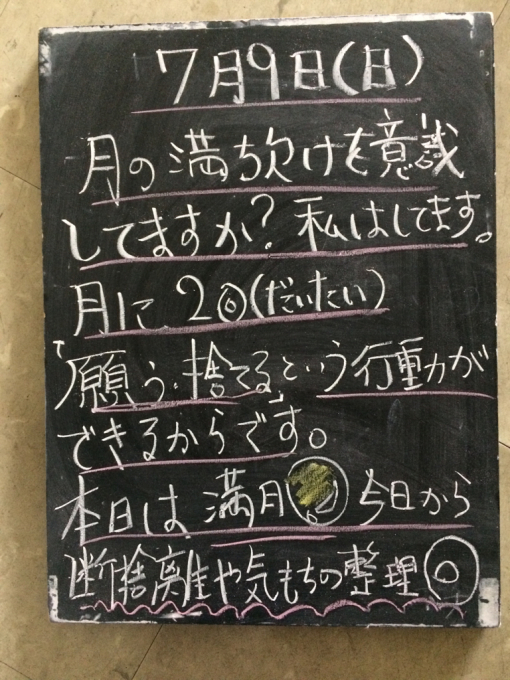 7月9日(日)
月の満ち欠けを意識
してますか?私はしてます。
月に2回(だいたい)
「願う・捨てる」という行動が
できるからです。
本日は満月。今日から
断捨離や気もちの整理◎